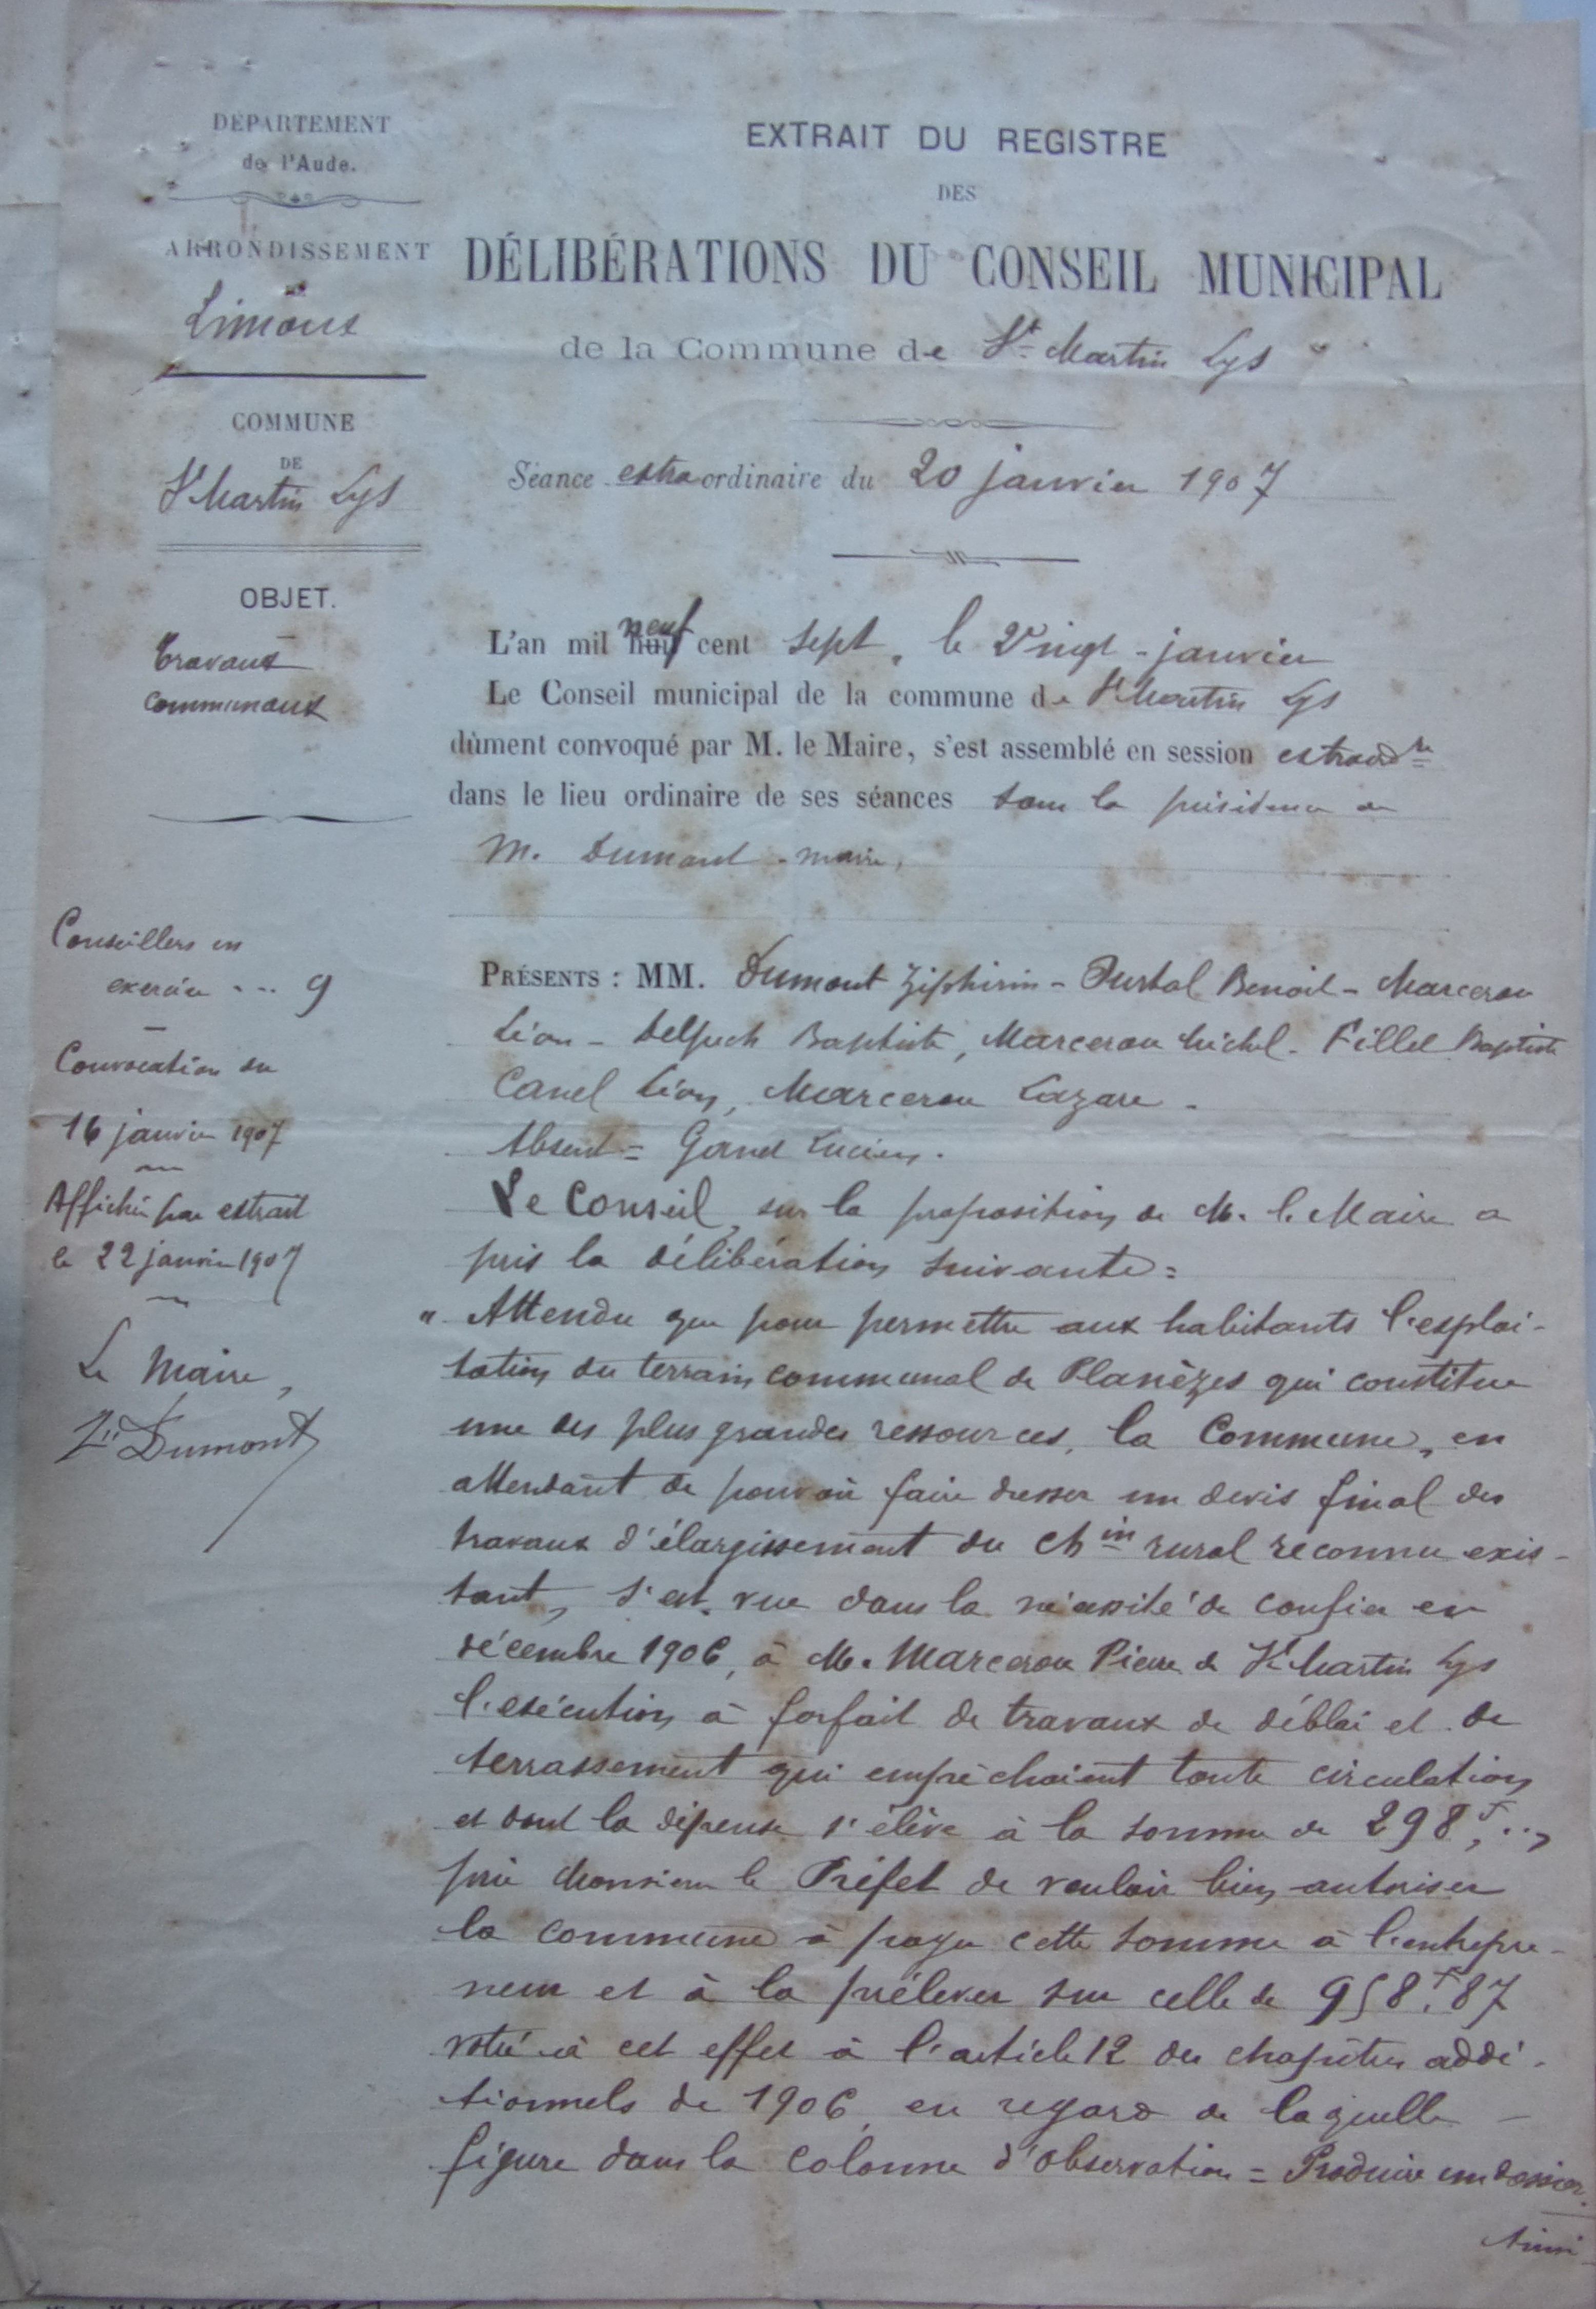 DÉPARTEMENT
de l'Aude.
ARRONDISSEMENT
Limoux
COMMUNE
DE
St Martin Lys
OBJET.
Travaux
communaux
Conseillers en
exercice ... 9
Convocation du
16 janvier 1907
Affiché par extrait
le 22 janvier 1907
Le Maire,
Zin Dumont
EXTRAIT DU REGISTRE
DES
DÉLIBÉRATIONS DU CONSEIL MUNICIPAL
de la Commune de St Martin Lys
Séance extraordinaire du 20 janvier 1907
neuf
L'an mil huit cent sept, le Vingt-janvier
Le Conseil municipal de la commune de St Martin Lys
dûment convoqué par M. le Maire, s'est assemblé en session extraordre
dans le lieu ordinaire de ses séances sous la présidence de
M. Dumont - maire,
PRÉSENTS : MM. Dumont Zéphirin - Burtal Benoit - Marcerou
Léon - Delpech Baptiste, Marcerou Michel - Fillel Baptiste
Canel Léon, Marcerou Lazare -
Absent = Lucien.
Le Conseil, sur la proposition de M. le Maire a
pris la délibération suivante =
" Attendu que pour permettre aux habitants l'exploi-
tation du terrain communal de Planèzes qui constitue
une des plus grandes ressources, la Commune, en
attendant de pouvoir faire dresser un devis final des
travaux d'élargissement du chin rural reconnu exis-
tant, s'est vue dans la nécessité de confier en
décembre 1906, à M. Marcerou Pierre de St Martin Lys
l'exécution à forfait de travaux de déblai et de
terrassement qui empêchaient toute circulation
et dont la dépense s'élève à la somme de 298f, ..,
prie Monsieur le Préfet de vouloir bien autoriser
la commune à payer cette somme à l'entrepre-
neur et à la prélever sur celle de 958f,87
votée à cet effet à l'article 12 des chapitres addi-
tionnels de 1906, en regard de laquelle -
figure dans la colonne d'observation = Produire un dossier.
Ainsi